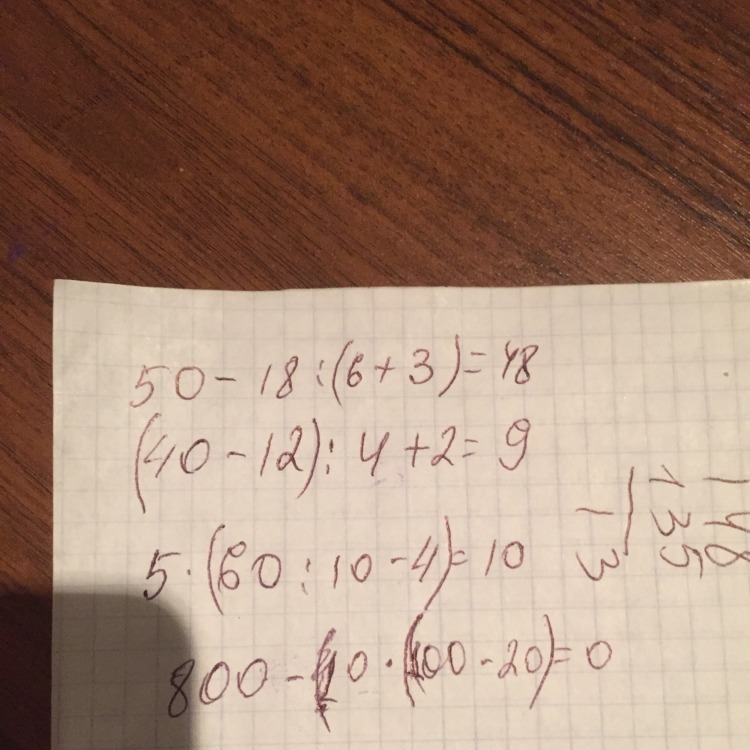 50 - 18 : (6 + 3) = 48
(40 - 12) : 4 + 2 = 9
5 · (60 : 10 - 4) = 10
800 - 10 · (100 - 20) = 0
148
135
13